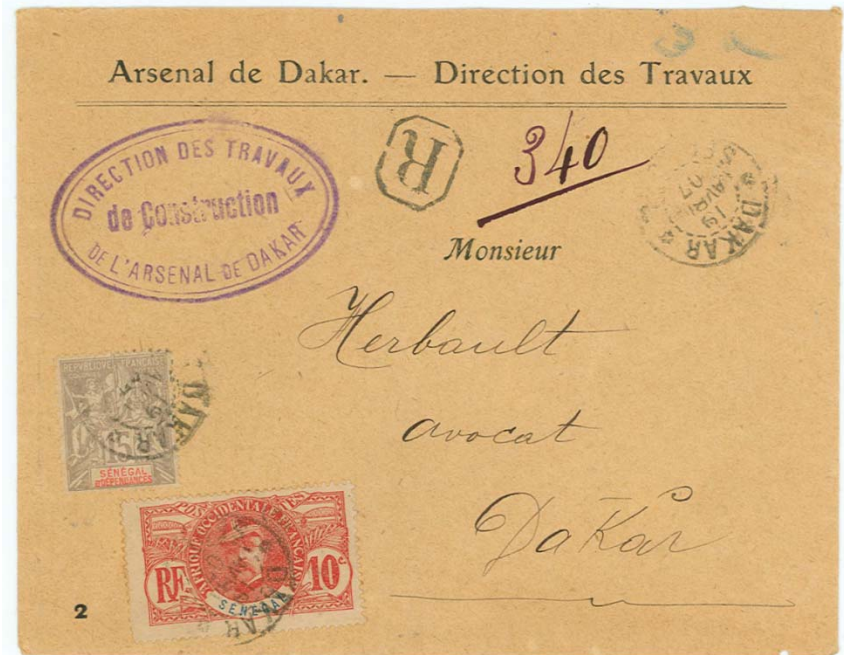 Arsenal de Dakar. — Direction des Travaux
DIRECTION DES TRAVAUX
de Construction
DE L'ARSENAL DE DAKAR
R
340
DAKAR
19
AVRIL
07
Monsieur
Herbault
avocat
Dakar
REPUBLIQUE FRANÇAISE
15
SÉNÉGAL
ET DÉPENDANCES
DAKAR
19
AFRIQUE OCCIDENTALE FRANÇAISE
RF
10c
SÉNÉGAL
DAKAR
2